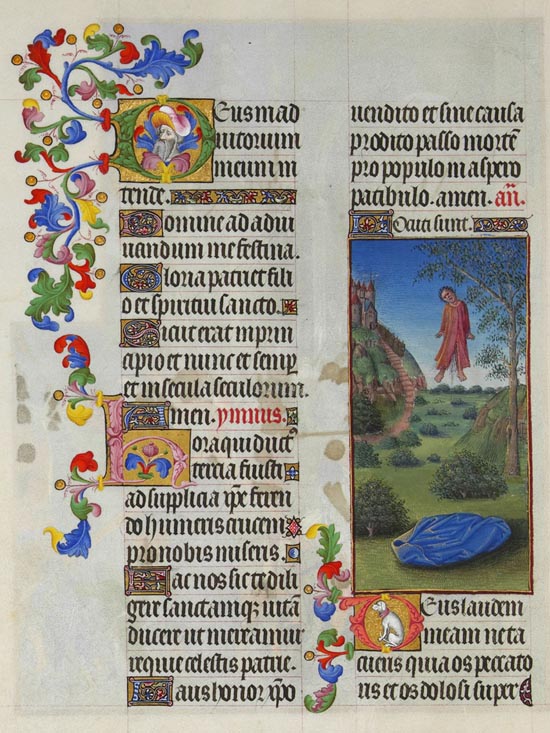 Deus in ad
iutorium
meum in
tende.
Domine ad adiu
uandum me festina.
Gloria patri et fili
o et spiritui sancto.
Sicut erat in prin
cipio et nunc et semp̄
et in secula seculorum.
Amen. ymnus.
Hora qui duct᷒
tercia fuisti
ad supplicia xp̄e feren
do humeris crucem
pro nobis miseris.
Fac nos sic te dili
gere sanctamqꝫ uitā
ducere ut mereamur
requie celestis patrie.
Laus honor xp̄o
uendito et sine causa
prodito passo mortē
pro populo in aspero
patibulo. amen. an̄.
Locuti sunt.
Deus laudem
meam ne ta
cueris quia os peccato
ris et os dolosi super